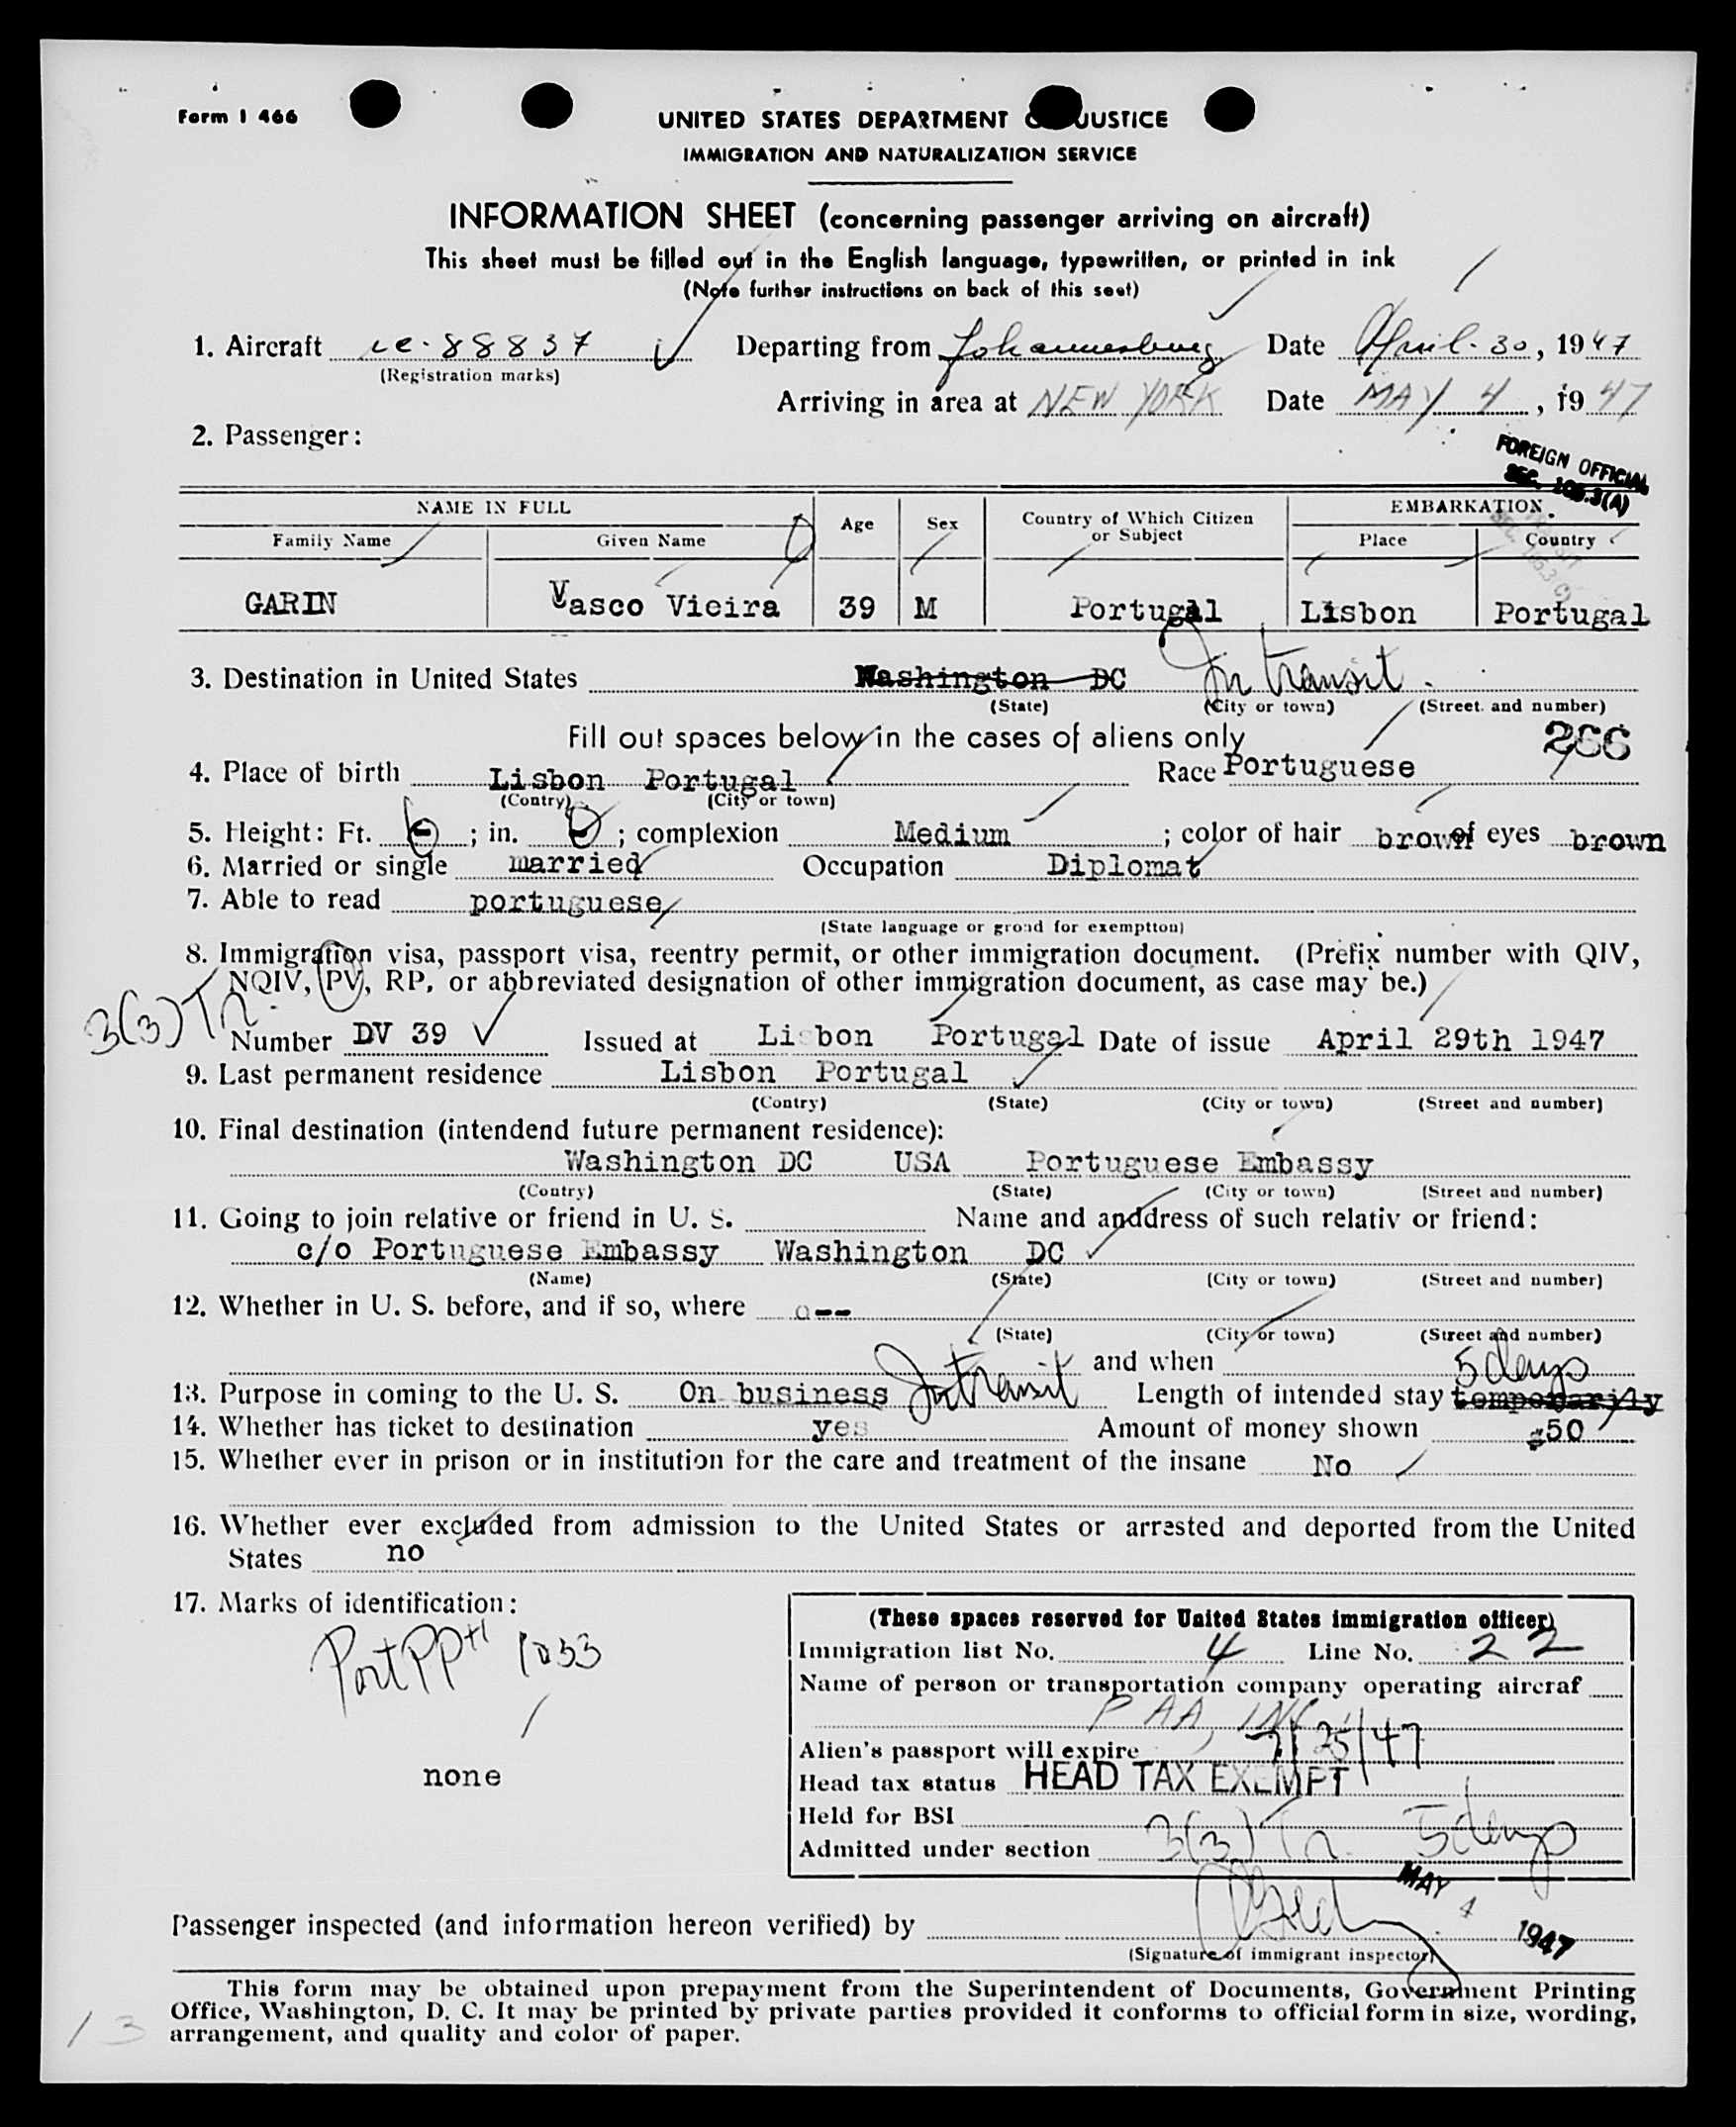 Form I 466
UNITED STATES DEPARTMENT JUSTICE
IMMIGRATION AND NATURALIZATION SERVICE
INFORMATION SHEET (concerning passenger arriving on aircraft)
This sheet must be filled out in the English language, typewritten, or printed in ink
(Note further instructions on back of this seet)
1. Aircraft 88837 Departing from Johannesburg Date April. 30, 1947
(Registration marks)
Arriving in area at NEW YORK Date MAY 4, 1947
2. Passenger:
FOREIGN OFFICIAL
SEC. 105.3(A)
NAME IN FULL Age Sex Country of Which Citizen or Subject EMBARKATION
Family Name Given Name Place Country
GARIN Vasco Vieira 39 M Portugal Lisbon Portugal
3. Destination in United States Washington DC In transit.
(State) (City or town) (Street. and number)
Fill out spaces below in the cases of aliens only
266
4. Place of birth Lisbon Portugal Race Portuguese
(Contry) (City or town)
5. Height: Ft. 6 ; in. 0 ; complexion Medium ; color of hair brown of eyes brown
6. Married or single married Occupation Diplomat
7. Able to read portuguese
(State language or groud for exemptton)
8. Immigration visa, passport visa, reentry permit, or other immigration document. (Prefix number with QIV,
NQIV, PV, RP, or abbreviated designation of other immigration document, as case may be.)
3(3) Tr.
Number DV 39 Issued at Li bon Portugal Date of issue April 29th 1947
9. Last permanent residence Lisbon Portugal
(Contry) (State) (City or town) (Street and number)
10. Final destination (intendend future permanent residence):
Washington DC USA Portuguese Embassy
(Contry) (State) (City or town) (Street and number)
11. Going to join relative or friend in U. S. Name and anddress of such relativ or friend:
c/o Portuguese Embassy Washington DC
(Name) (State) (City or town) (Street and number)
12. Whether in U. S. before, and if so, where o--
(State) (City or town) (Street and number)
and when
5 days
13. Purpose in coming to the U. S. On business In transit Length of intended stay temporarily
14. Whether has ticket to destination yes Amount of money shown $50
15. Whether ever in prison or in institution for the care and treatment of the insane No
16. Whether ever excluded from admission to the United States or arrested and deported from the United
States no
17. Marks of identification:
Port PP# 1033
none
(These spaces reserved for United States immigration officer)
Immigration list No. 4 Line No. 22
Name of person or transportation company operating aircraf
PAA, INC.
Alien's passport will expire 7/25/47
Head tax status HEAD TAX EXEMPT
Held for BSI
Admitted under section 3(3) Tr. 5 days
MAY 4 1947
Passenger inspected (and information hereon verified) by
(Signature of immigrant inspector)
This form may be obtained upon prepayment from the Superintendent of Documents, Government Printing
Office, Washington, D. C. It may be printed by private parties provided it conforms to official form in size, wording,
arrangement, and quality and color of paper.
13